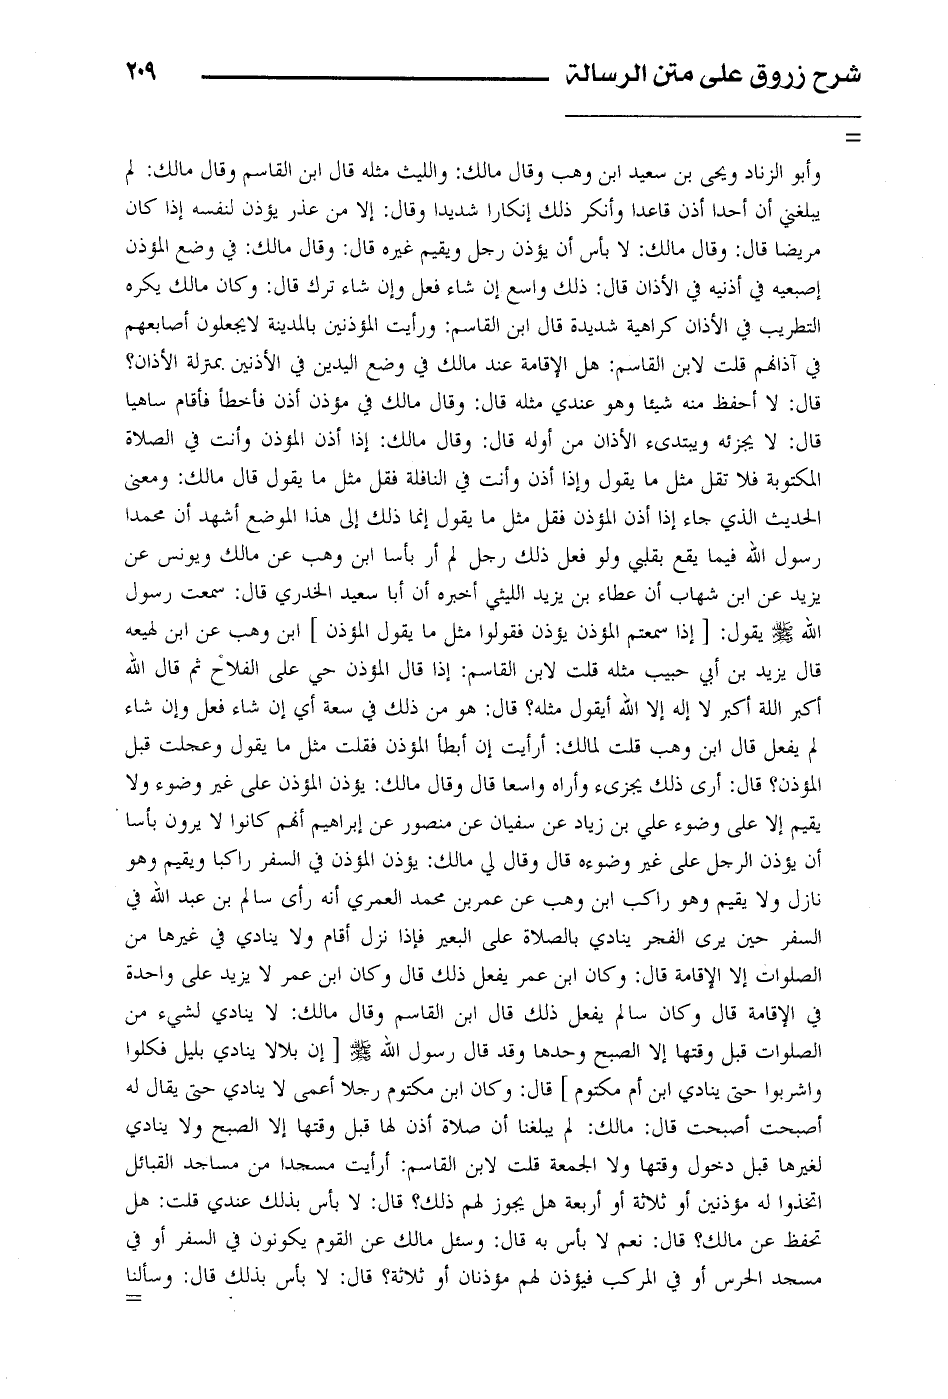 شرح زروق على متن الرسالة ٢٠٩
=
وأبو الزناد ويحى بن سعيد ابن وهب وقال مالك: والليث مثله قال ابن القاسم وقال مالك: لم
يبلغني أن أحدا أذن قاعدا وأنكر ذلك إنكارا شديدا وقال: إلا من عذر يؤذن لنفسه إذا كان
مريضا قال: وقال مالك: لا بأس أن يؤذن رجل ويقيم غيره قال: وقال مالك: في وضع المؤذن
إصبعيه في أذنيه في الأذان قال: ذلك واسع إن شاء فعل وإن شاء ترك قال: وكان مالك يكره
التطريب في الأذان كراهية شديدة قال ابن القاسم: ورأيت المؤذنين بالمدينة لايجعلون أصابعهم
في آذانهم قلت لابن القاسم: هل الإقامة عند مالك في وضع اليدين في الأذنين بمنزلة الأذان؟
قال: لا أحفظ منه شيئا وهو عندي مثله قال: وقال مالك في مؤذن أذن فأخطأ فأقام ساهيا
قال: لا يجزئه ويبتدىء الأذان من أوله قال: وقال مالك: إذا أذن المؤذن وأنت في الصلاة
المكتوبة فلا تقل مثل ما يقول وإذا أذن وأنت في النافلة فقل مثل ما يقول قال مالك: ومعنى
الحديث الذي جاء إذا أذن المؤذن فقل مثل ما يقول إنما ذلك إلى هذا الموضع أشهد أن محمدا
رسول الله فيما يقع بقلبي ولو فعل ذلك رجل لم أر بأسا ابن وهب عن مالك ويونس عن
يزيد عن ابن شهاب أن عطاء بن يزيد الليثي أخبره أن أبا سعيد الخدري قال: سمعت رسول
الله ﷺ يقول: [ إذا سمعتم المؤذن يؤذن فقولوا مثل ما يقول المؤذن ] ابن وهب عن ابن لهيعه
قال يزيد بن أبي حبيب مثله قلت لابن القاسم: إذا قال المؤذن حي على الفلاح ثم قال الله
أكبر اللة أكبر لا إله إلا الله أيقول مثله؟ قال: هو من ذلك في سعة أي إن شاء فعل وإن شاء
لم يفعل قال ابن وهب قلت لمالك: أرأيت إن أبطأ المؤذن فقلت مثل ما يقول وعجلت قبل
المؤذن؟ قال: أرى ذلك يجزىء وأراه واسعا قال وقال مالك: يؤذن المؤذن على غير وضوء ولا
يقيم إلا على وضوء علي بن زياد عن سفيان عن منصور عن إبراهيم أنهم كانوا لا يرون بأسا
أن يؤذن الرجل على غير وضوءه قال وقال لي مالك: يؤذن المؤذن في السفر راكبا ويقيم وهو
نازل ولا يقيم وهو راكب ابن وهب عن عمربن محمد العمري أنه رأى سالم بن عبد الله في
السفر حين يرى الفجر ينادي بالصلاة على البعير فإذا نزل أقام ولا ينادي في غيرها من
الصلوات إلا الإقامة قال: وكان ابن عمر يفعل ذلك قال وكان ابن عمر لا يزيد على واحدة
في الإقامة قال وكان سالم يفعل ذلك قال ابن القاسم وقال مالك: لا ينادي لشيء من
الصلوات قبل وقتها إلا الصبح وحدها وقد قال رسول الله ﷺ [ إن بلالا ينادي بليل فكلوا
واشربوا حتى ينادي ابن أم مكتوم ] قال: وكان ابن مكتوم رجلا أعمى لا ينادي حتى يقال له
أصبحت أصبحت قال: مالك: لم يبلغنا أن صلاة أذن لها قبل وقتها إلا الصبح ولا ينادي
لغيرها قبل دخول وقتها ولا الجمعة قلت لابن القاسم: أرأيت مسجدا من مساجد القبائل
اتخذوا له مؤذنين أو ثلاثة أو أربعة هل يجوز لهم ذلك؟ قال: لا بأس بذلك عندي قلت: هل
تحفظ عن مالك؟ قال: نعم لا بأس به قال: وسئل مالك عن القوم يكونون في السفر أو في
مسجد الحرس أو في المركب فيؤذن لهم مؤذنان أو ثلاثة؟ قال: لا بأس بذلك قال: وسألنا
=